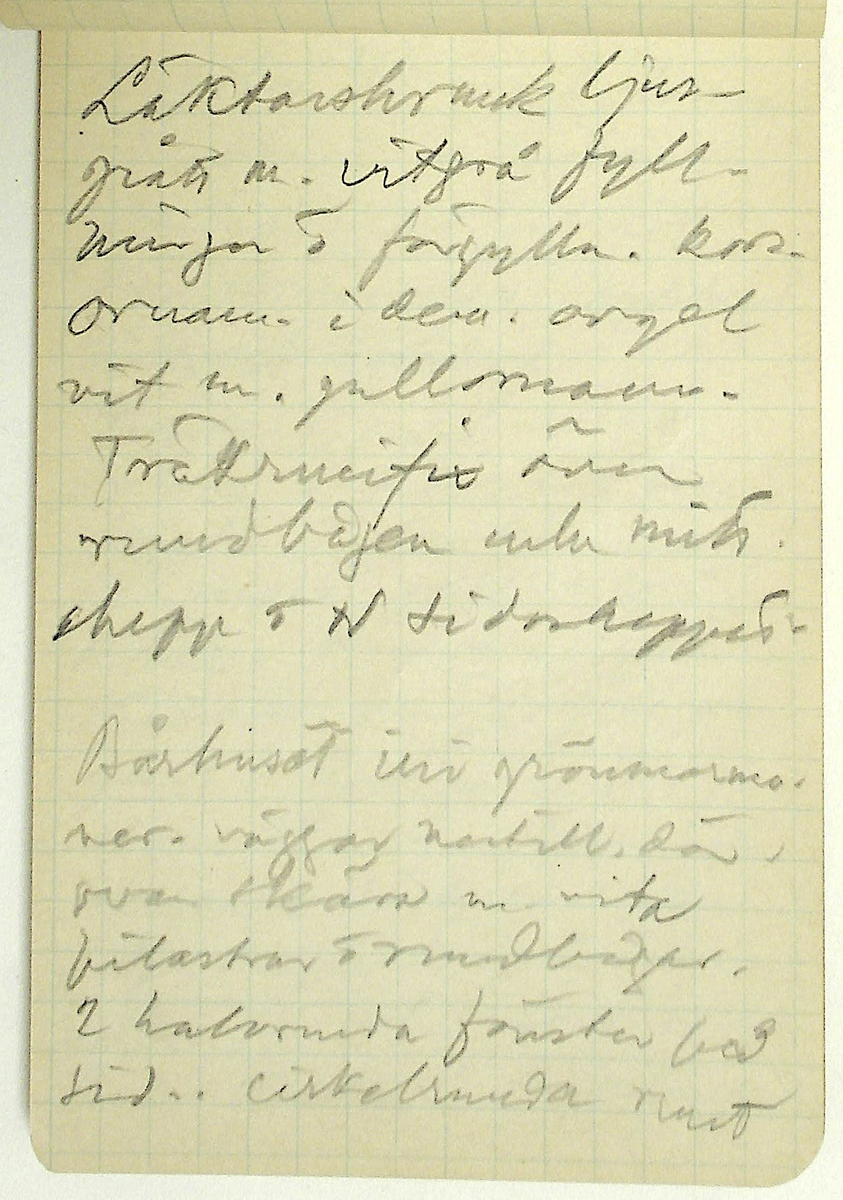 Läktarskrank ljus-
grått m. vitgrå fyll-
ningar o förgylln. kors-
ornam. i dem. orgel
vit m. gullornam.
Träkrucifix över
rundbågen mitt
skepp o N sidoskeppet
Bårhuset inv grönmarmo-
rer. väggar nertill, där
ovan skära m vita
pilastrar o rundbågar.
2 halvrunda fönster på
sid.. cirkelrunda runt